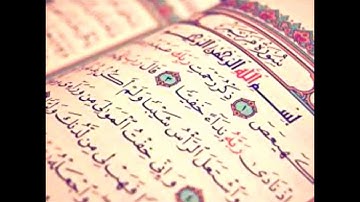 سُورَةُ مَرْيَمَ
بِسْمِ اللَّهِ الرَّحْمَٰنِ الرَّحِيمِ
كهيعص ١ ذِكْرُ رَحْمَتِ رَبِّكَ
إِذْ نَادَىٰ رَبَّهُ نِدَاءً خَفِيًّا ٣ قَالَ رَبِّ
وَاشْتَعَلَ الرَّأْسُ شَيْبًا وَلَمْ أَكُن
وَإِنِّي خِفْتُ الْمَوَالِيَ مِن
فَهَبْ لِي مِن لَّدُنكَ
وَاجْعَلْهُ